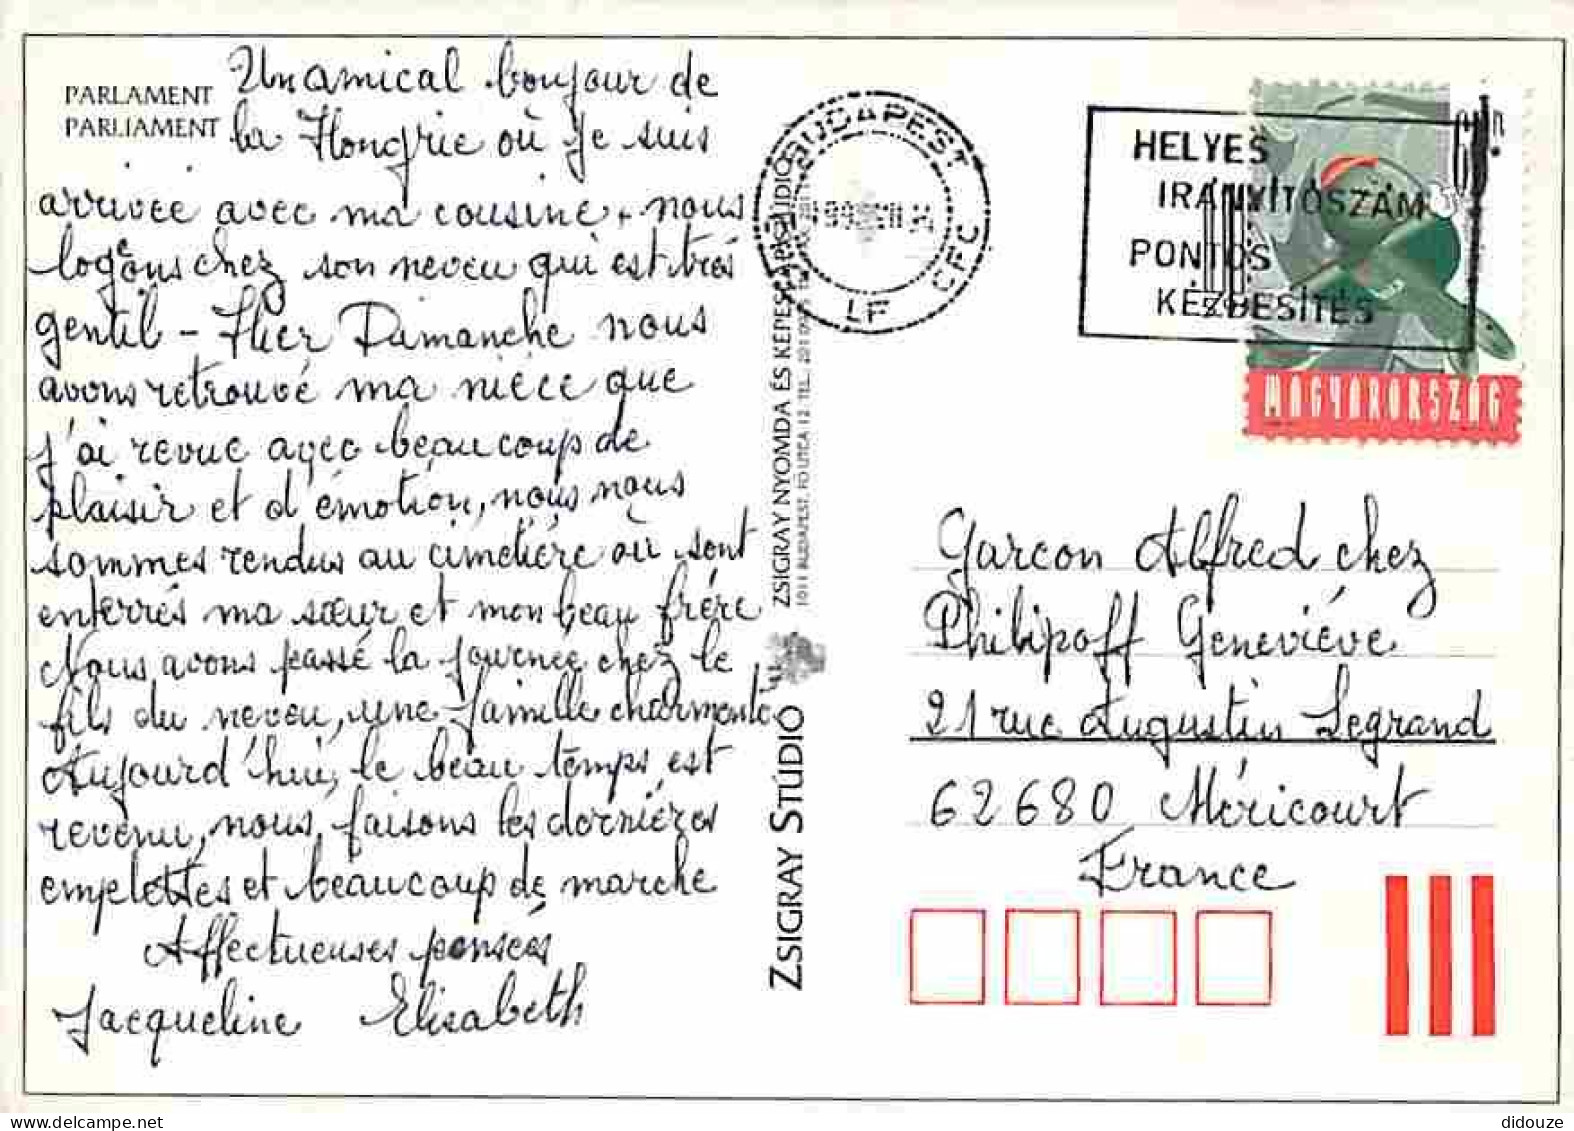 PARLAMENT
PARLIAMENT
Un amical bonjour de
la Hongrie où je suis
arrivée avec ma cousine + nous
logeons chez son neveu qui est très
gentil - Hier Dimanche nous
avons retrouvé ma nièce que
j'ai revue avec beaucoup de
plaisir et d'émotion, nous nous
sommes rendus au cimetière où sont
enterrés ma sœur et mon beau frère
Nous avons passé la journée chez le
fils du neveu, une famille charmante
Aujourd'hui, le beau temps est
revenu, nous faisons les dernières
emplettes et beaucoup de marche
Affectueuses pensées
Jacqueline Elisabeth
ZSIGRAY NYOMDA ÉS KÉPESLAPSTÚDIÓ
1011 BUDAPEST, FŐ UTCA 12. TEL.
ZSIGRAY STÚDIÓ
BUDAPEST
LF CFC
HELYES
IRÁNYÍTÓSZÁM
PONTOS
KÉZBESÍTÉS
MAGYARORSZÁG
Garcon Alfred chez
Philipoff Geneviève
21 rue Augustin Legrand
62680 Méricourt
France
didouze